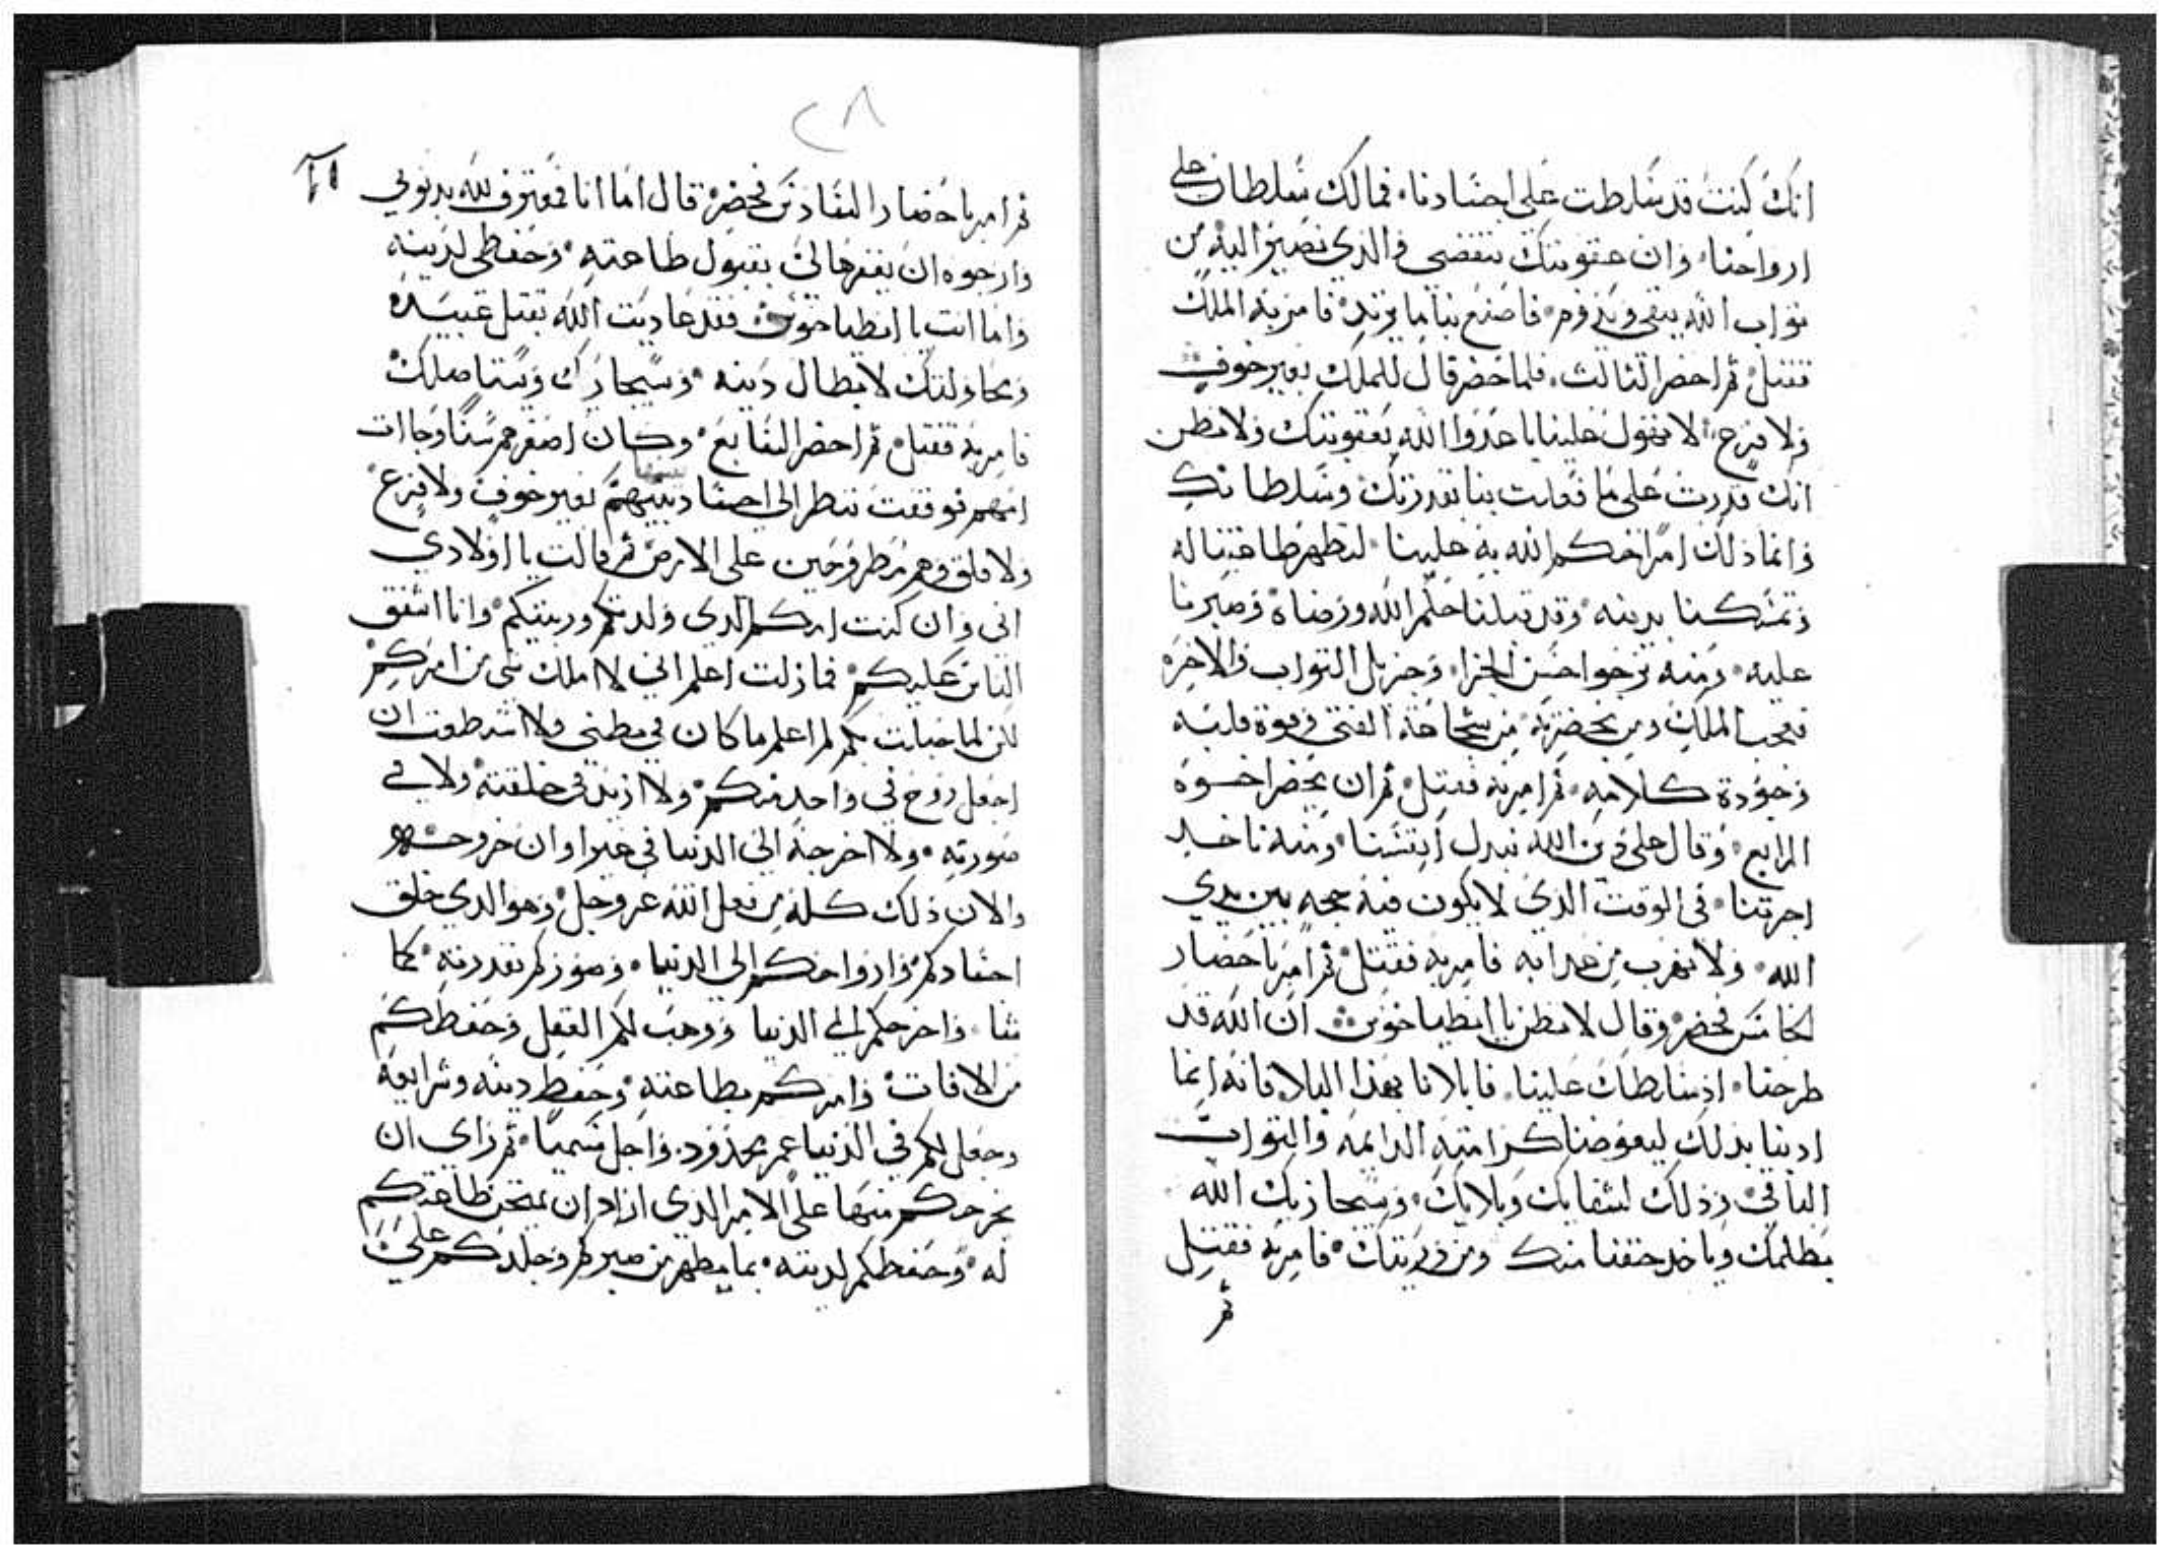 انك كنت قد سلطت على اجسادنا فمالك سلطان على
ارواحنا وان عقوبتك تنقضي والذي نصير اليه من
ثواب الله يبقى ويدوم فاصنع بنا ما تريد فامر به الملك
فقتل ثم احضر الثالث فلما حضر قال للملك بغير خوف
ولا فزع لا تهول علينا يا عدوا الله بعقوبتك ولا تظن
انك قدرت على ما فعلت بنا بقدرتك وسلطانك
وانما ذلك امرا حكم الله به علينا لتظهر طاعتنا له
وتمسكنا بدينه وقد قبلنا حكم الله ورضاه وصبرنا
عليه ومنه نرجوا حسن الجزا وجزيل الثواب والاخره
فعجب الملك ومن بحضرته من شجاعة الفتى وقوة قلبه
وجودة كلامه ثم امر به فقتل ثم ان يحضر اخوه
الرابع وقال على دين الله نبدل انفسنا ومنه ناخد
اجرتنا في الوقت الدي لا يكون فيه حجه بين يدي
الله ولا نهرب من عدابه فامر به فقتل ثم امر باحضار
الخامس فحضر وقال لا تظن يا انطياخوس ان الله قد
طرحنا اذ سلطك علينا فابلانا بهذا البلا فانه انما
ادبنا بدلك ليعوضنا كرامته الدايمه والثواب
الباقي وذلك لشقايك وبلايك وسيجازيك الله
بظلمك وياخد حقنا منك ومن ذريتك فامر به فقتل
ثم
٢٨
ثم امر باحضار السادس فحضر قال اما انا فمعترف لله بدنوبي
وارجوه ان يغفرها لي بقبول طاعته وحفظي لدينه
واما انت يا انطياخوس فقد عاديت الله بقتل عبيده
ومحاولتك لابطال دينه وسيجازك ويستاصلك
فامر به فقتل ثم احضر السابع وكان اصغرهم سنا وجات
امهم فوقفت تنظر الى اجساد بنيهم بغير خوف ولا فزع
ولا قلق وهم مطروحين على الارض ثم قالت يا اولادي
اني وان كنت امكم الدي ولدتكم وربيتكم وانا اشفق
الناس عليكم فمازلت اعلم اني لا املك شي من امركم
لاني لما حبلت بكم لم اعلم ما كان في بطني ولا استطعت ان
اجعل روح في واحد منكم ولا ازيد في خلقته ولا في
صورته ولا اخرجه الى الدنيا في غير اوان خروجه
والان ذلك كله من فعل الله عز وجل وهو الدي خلق
اجسادكم وارواحكم الى الدنيا وصوركم بقدرته كما
شا واخرجكم الى الدنيا ووهب لكم العقل وحفظكم
من الافات وامركم بطاعته وحفظ دينه وشرايعه
وجعل لكم في الدنيا عمر محدود واجل مسميا ثم راى ان
يخرجكم منها على الامر الدي اراد ان يمتحن طاعتكم
له وحفظكم لدينه بما يظهر من صبركم وجلدكم على